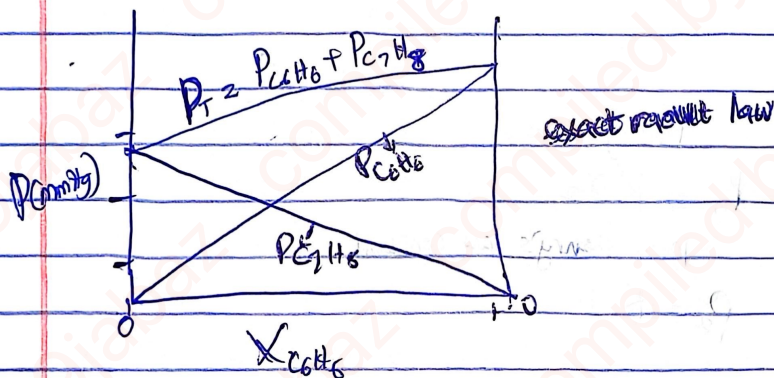 P_T = P_C6H6 + P_C7H8
exact raoult law
P(mmHg)
P_C6H6
P_C7H8
0
1
0
X_C6H6
compiled by